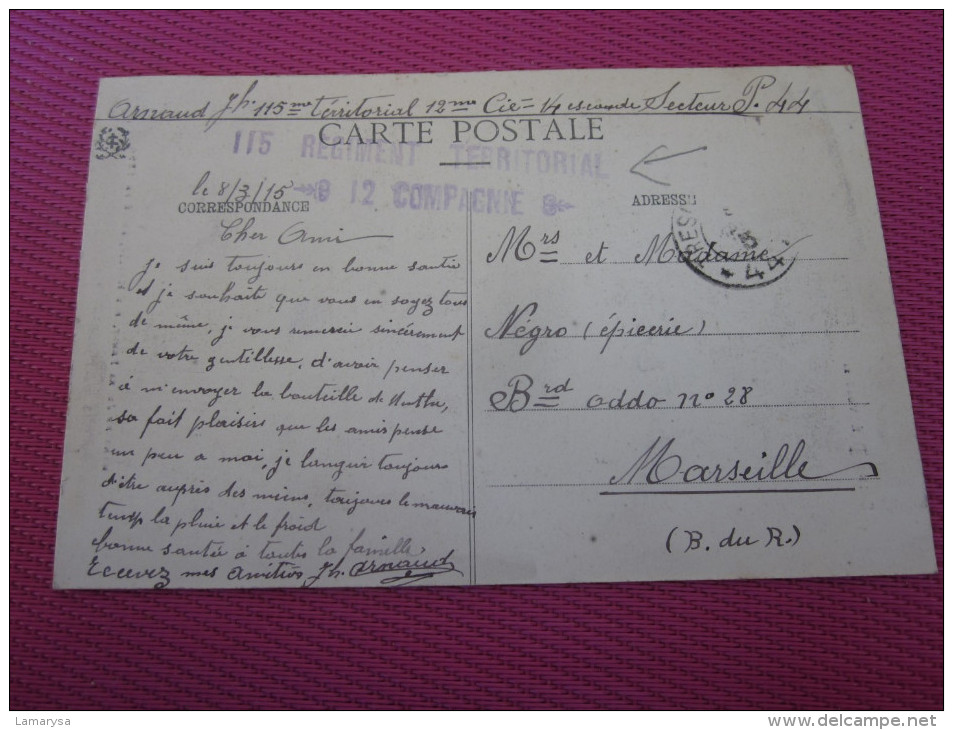 Arnaud Jh. 115me Térritorial 12me Cie - 14 escouade Secteur P. 44
CARTE POSTALE
115 REGIMENT TERRITORIAL
12 COMPAGNIE
le 8/3/15
CORRESPONDANCE
Cher Ami
Je suis toujours en bonne santée
et je souhaite que vous en soyez tous
de même, je vous remercie sincérement
de votre gentillesse, d'avoir penser
à m'envoyer la bouteille de
sa fait plaisirs que les amis pense
un peu a moi, je languir toujours
d'être auprès des miens, toujours le mauvais
temp la pluie et le froid
bonne santée à toutes la famille,
Recevez mes amitiés Jh. Arnaud
ADRESSE
TRESOR
* 44 *
Mrs et Madame
Négro (épicerie)
Brd oddo n° 28
Marseille
(B. du R.)
Lamarysa
www.delcampe.net